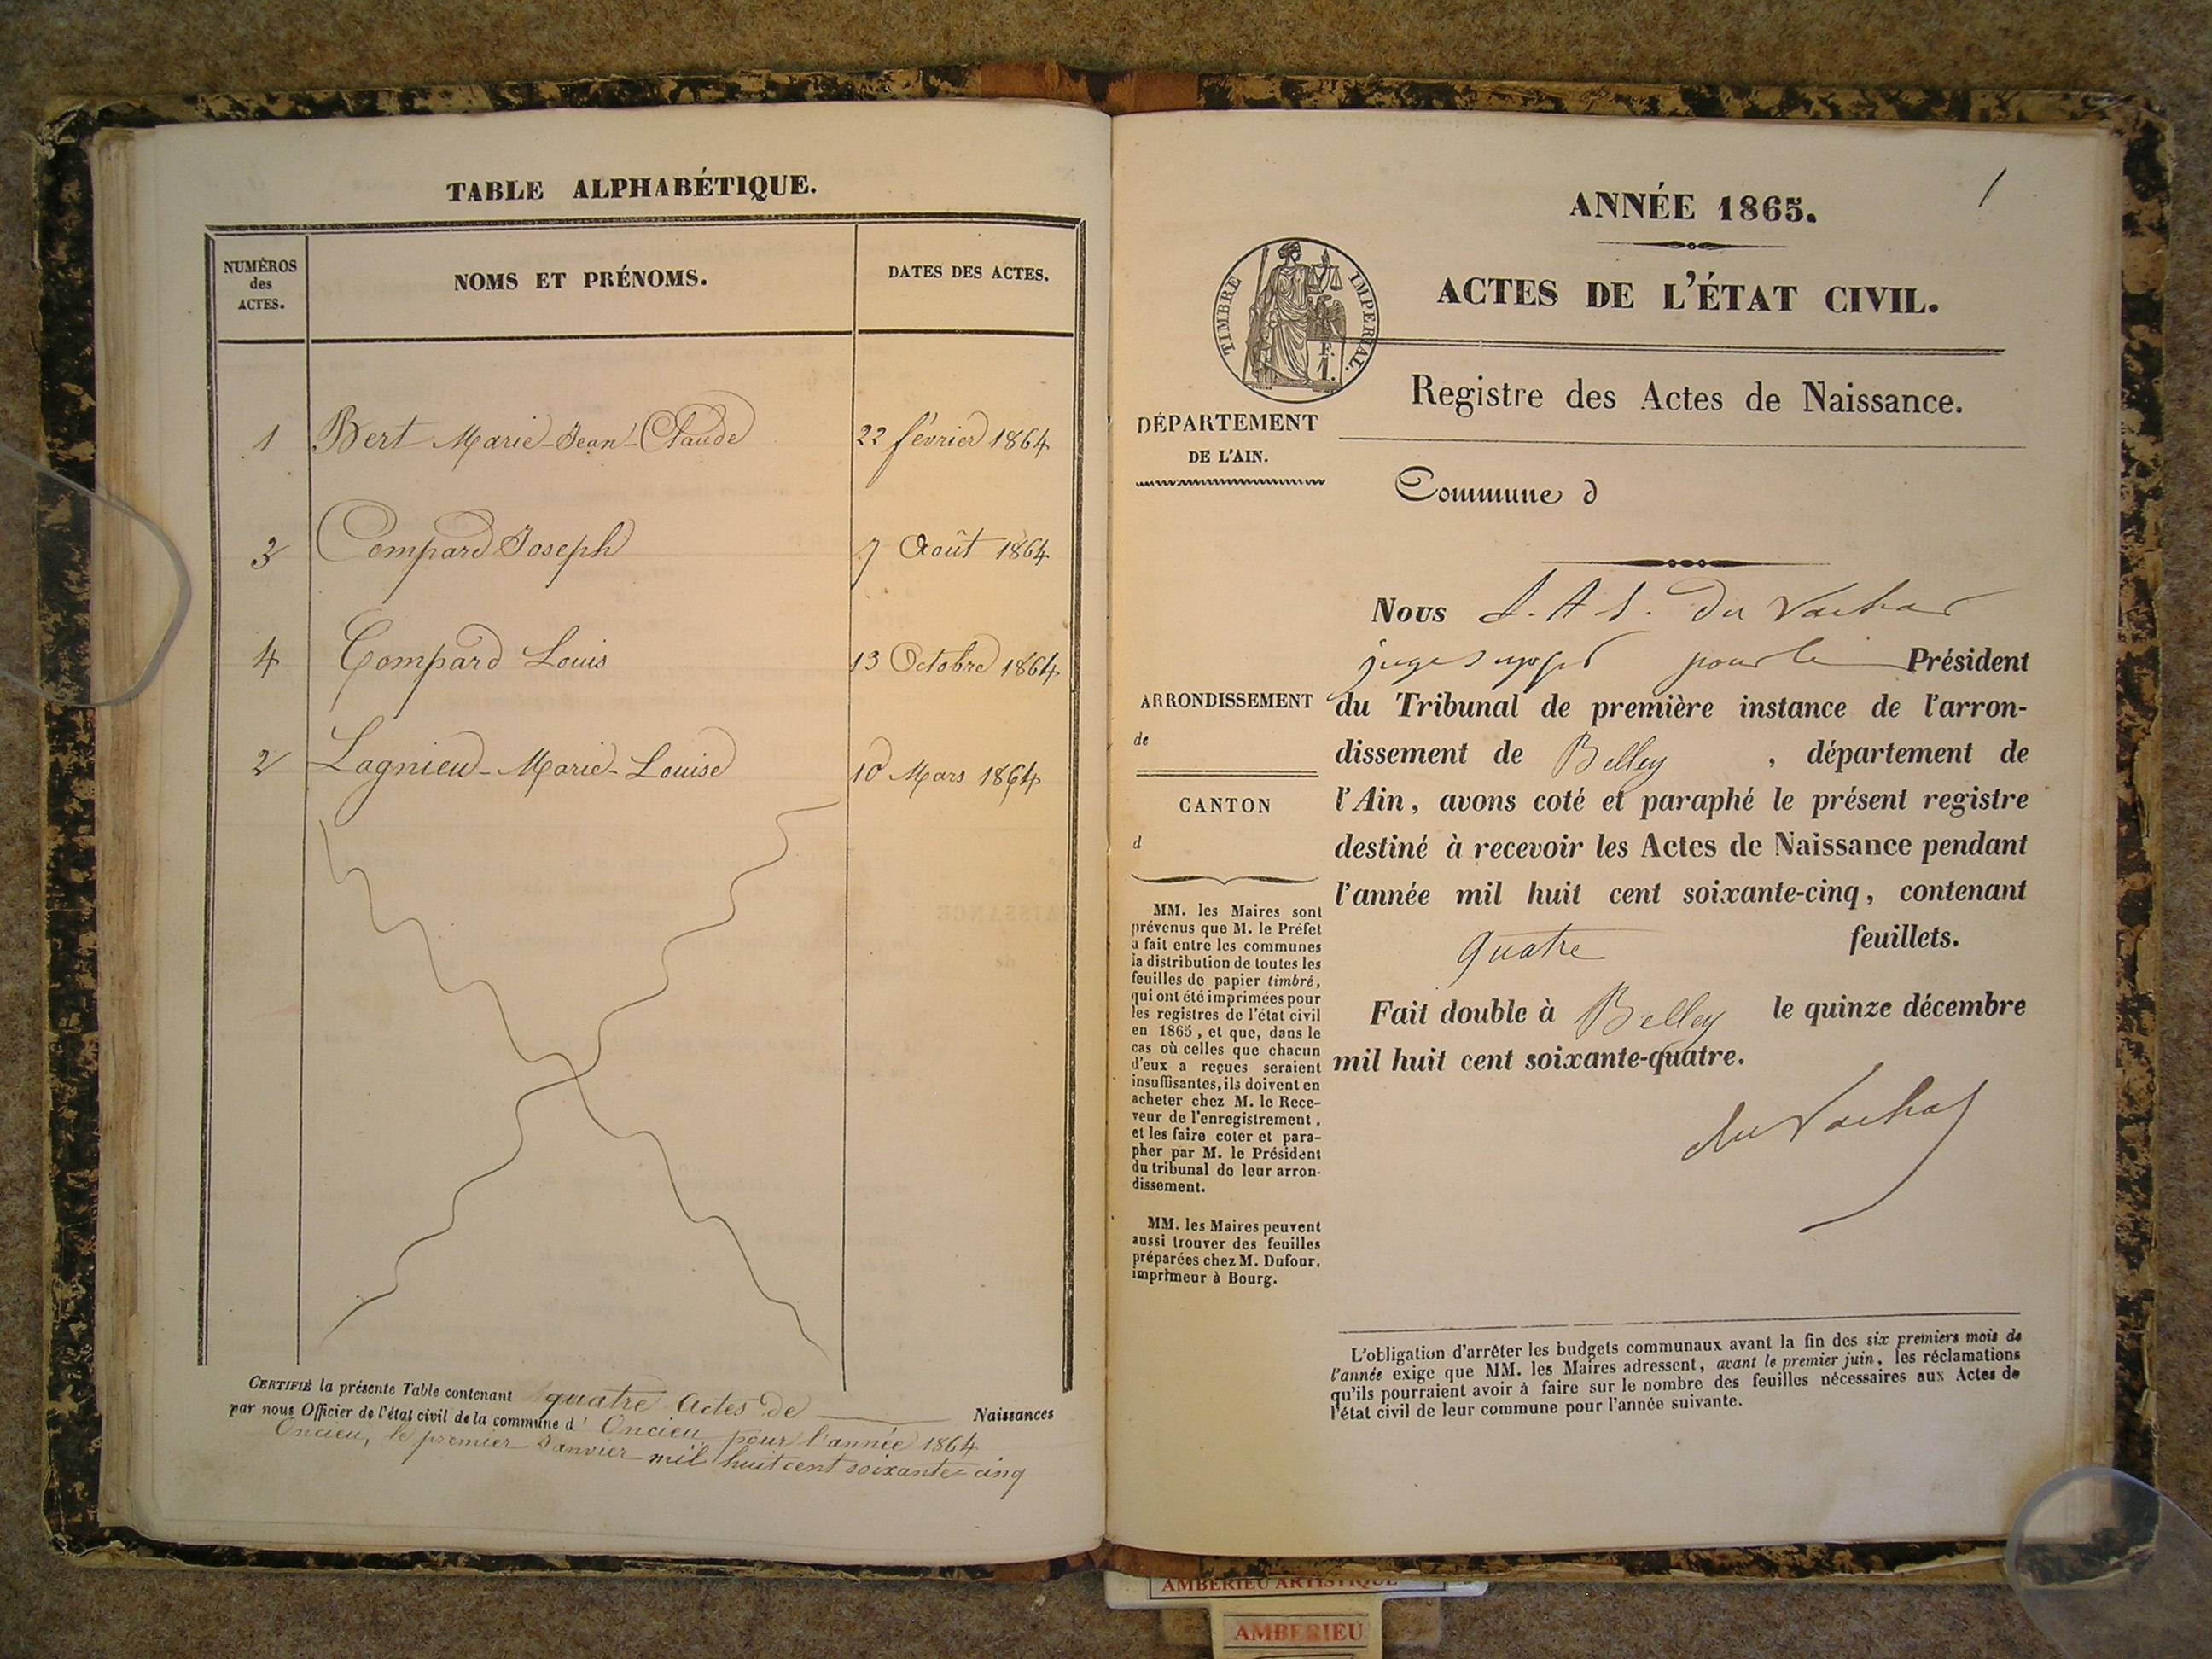 TABLE ALPHABÉTIQUE.
NUMÉROS
des
ACTES.
NOMS ET PRÉNOMS.
DATES DES ACTES.
1 Bert Marie-Jean-Claude 22 février 1864
3 Compard Joseph 7 Août 1864
4 Compard Louis 13 Octobre 1864
2 Lagnieu-Marie-Louise 10 Mars 1864
CERTIFIÉ la présente Table contenant quatre Actes de Naissances
par nous Officier de l'état civil de la commune d' Oncieu pour l'année 1864
Oncieu, le premier Janvier mil huit cent soixante-cinq
1
ANNÉE 1865.
ACTES DE L'ÉTAT CIVIL.
TIMBRE IMPERIAL.
F.
1.
Registre des Actes de Naissance.
DÉPARTEMENT
DE L'AIN.
Commune d
ARRONDISSEMENT
de
CANTON
d
MM. les Maires sont
prévenus que M. le Préfet
a fait entre les communes
la distribution de toutes les
feuilles de papier timbré,
qui ont été imprimées pour
les registres de l'état civil
en 1865, et que, dans le
cas où celles que chacun
d'eux a reçues seraient
insuffisantes, ils doivent en
acheter chez M. le Rece-
veur de l'enregistrement,
et les faire coter et para-
pher par M. le Président
du tribunal de leur arron-
dissement.
MM. les Maires peuvent
aussi trouver des feuilles
préparées chez M. Dufour,
imprimeur à Bourg.
Nous du Vachat
juge pour le Président
du Tribunal de première instance de l'arron-
dissement de Belley , département de
l'Ain, avons coté et paraphé le présent registre
destiné à recevoir les Actes de Naissance pendant
l'année mil huit cent soixante-cinq, contenant
quatre feuillets.
Fait double à Belley le quinze décembre
mil huit cent soixante-quatre.
du Vachat
L'obligation d'arrêter les budgets communaux avant la fin des six premiers mois de
l'année exige que MM. les Maires adressent, avant le premier juin, les réclamations
qu'ils pourraient avoir à faire sur le nombre des feuilles nécessaires aux Actes de
l'état civil de leur commune pour l'année suivante.
AMBERIEU ARTISTIQUE
AMBERIEU